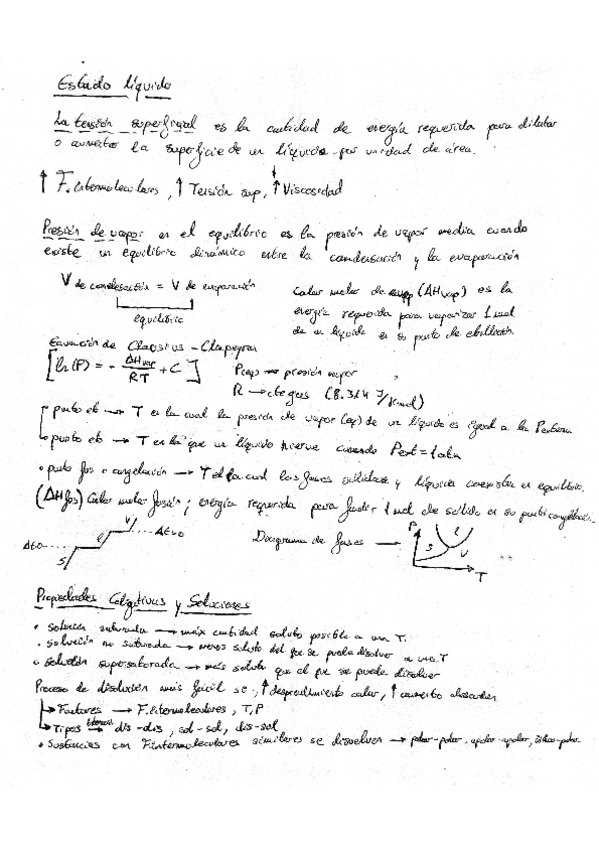 Estado líquido
La tensión superficial es la cantidad de energía requerida para dilatar
o aumentar la superficie de un líquido por unidad de área.
↑ F. Intermoleculares, ↑ Tensión sup, ↑ Viscosidad
Presión de vapor en el equilibrio es la presión de vapor media cuando
existe un equilibrio dinámico entre la condensación y la evaporación
V de condensación = V de evaporación
equilibrio
Calor molar de (ΔHvap) es la
energía requerida para vaporizar 1 mol
de un líquido en su punto de ebullición.
Ecuación de Clausius - Clapeyron
[ln(P) = - ΔHvap/RT + C]
→ presión vapor
R → cte gases (8.314 J/Kmol)
punto eb → T en la cual la presión de vapor (eq) de un líquido es igual a la Pexterna
punto eb → T en la que un líquido hierve cuando Pext = 1 atm
• punto fus o congelación → T a la cual las fases sólida y líquida coexisten en equilibrio.
(ΔHfus) Calor molar fusión; energía requerida para fundir 1 mol de sólido en su punto congelación.
ΔE>0
S
l
V
ΔE>0
Diagrama de fases →
P
S
l
V
T
Propiedades Coligativas y Soluciones
• solución saturada → máx cantidad soluto posible a una T.
• solución no saturada → menos soluto del que se puede disolver a una T
• solución supersaturada → más soluto que el que se puede disolver
Proceso de disolución más fácil si: ↑ desprendimiento calor, ↑ aumento desorden
→ Factores → F. Intermoleculares, T, P
→ Tipos → dis-dis, sol-sol, dis-sol
• Sustancias con F. intermoleculares similares se disuelven → polar-polar, apolar-apolar, iónico-polar.